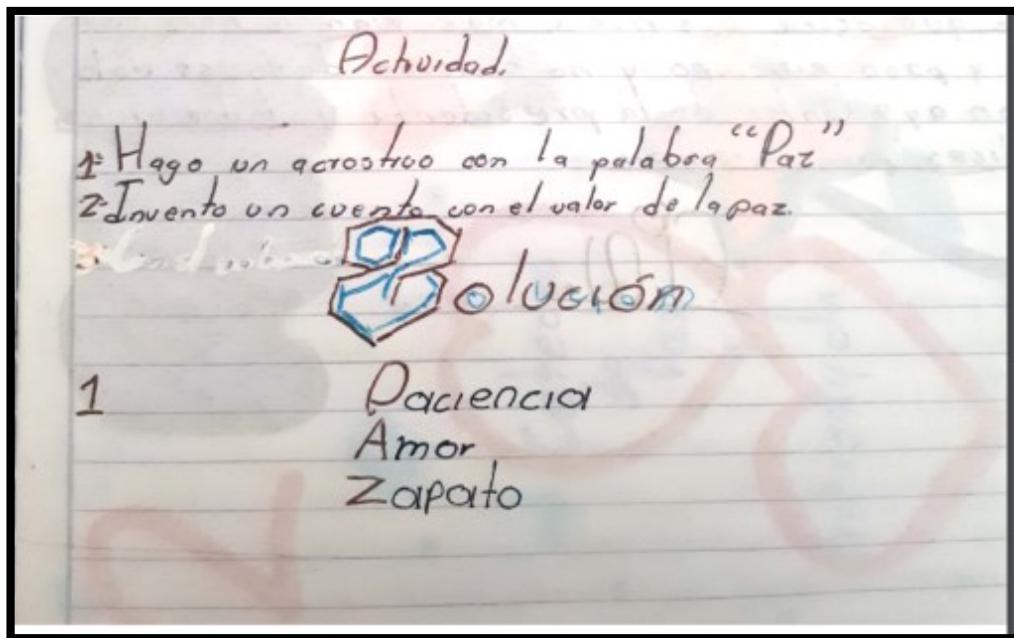 Actividad.
1- Hago un acrostico con la palabra "Paz"
2- Invento un cuento con el valor de la paz.
Solución
1
Paciencia
Amor
Zapato